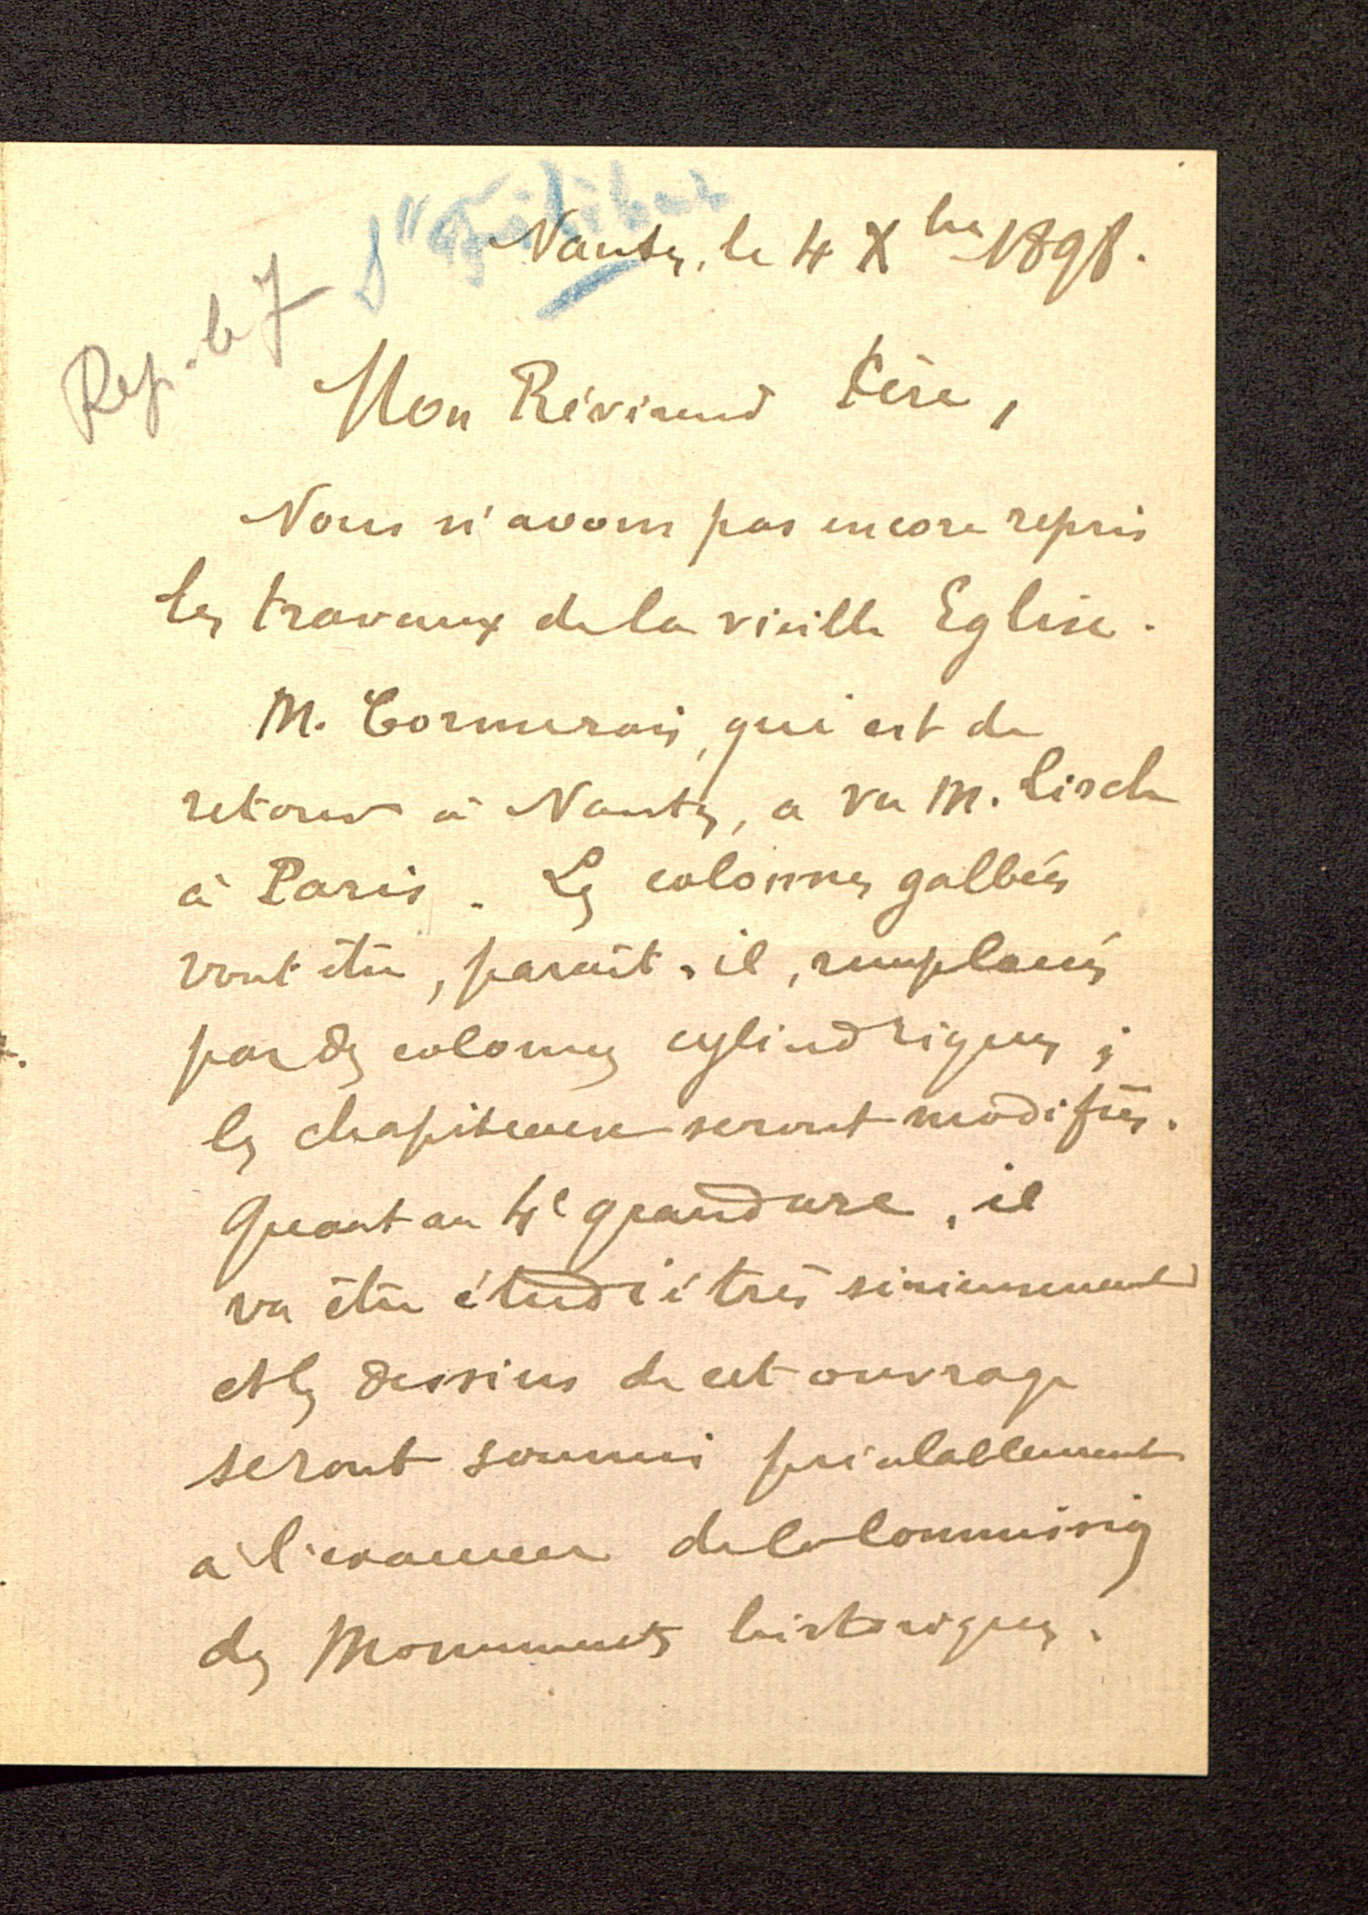 Nantes, le 4 Xbre 1898.
Rep. le 7
Mon Révérend Père,
Nous n'avons pas encore repris
les travaux de la vieille Eglise.
M. Cormerais, qui est de
retour à Nantes, a vu M. Lisch
à Paris. Les colonnes galbées
vont être, paraît-il, remplacées
par des colonnes cylindriques ;
les chapiteaux seront modifiés.
Quant au 4e grand arc, il
va être étudié très sérieusement
et les dessins de cet ouvrage
seront soumis préalablement
à l'examen de la Commission
des Monuments historiques.